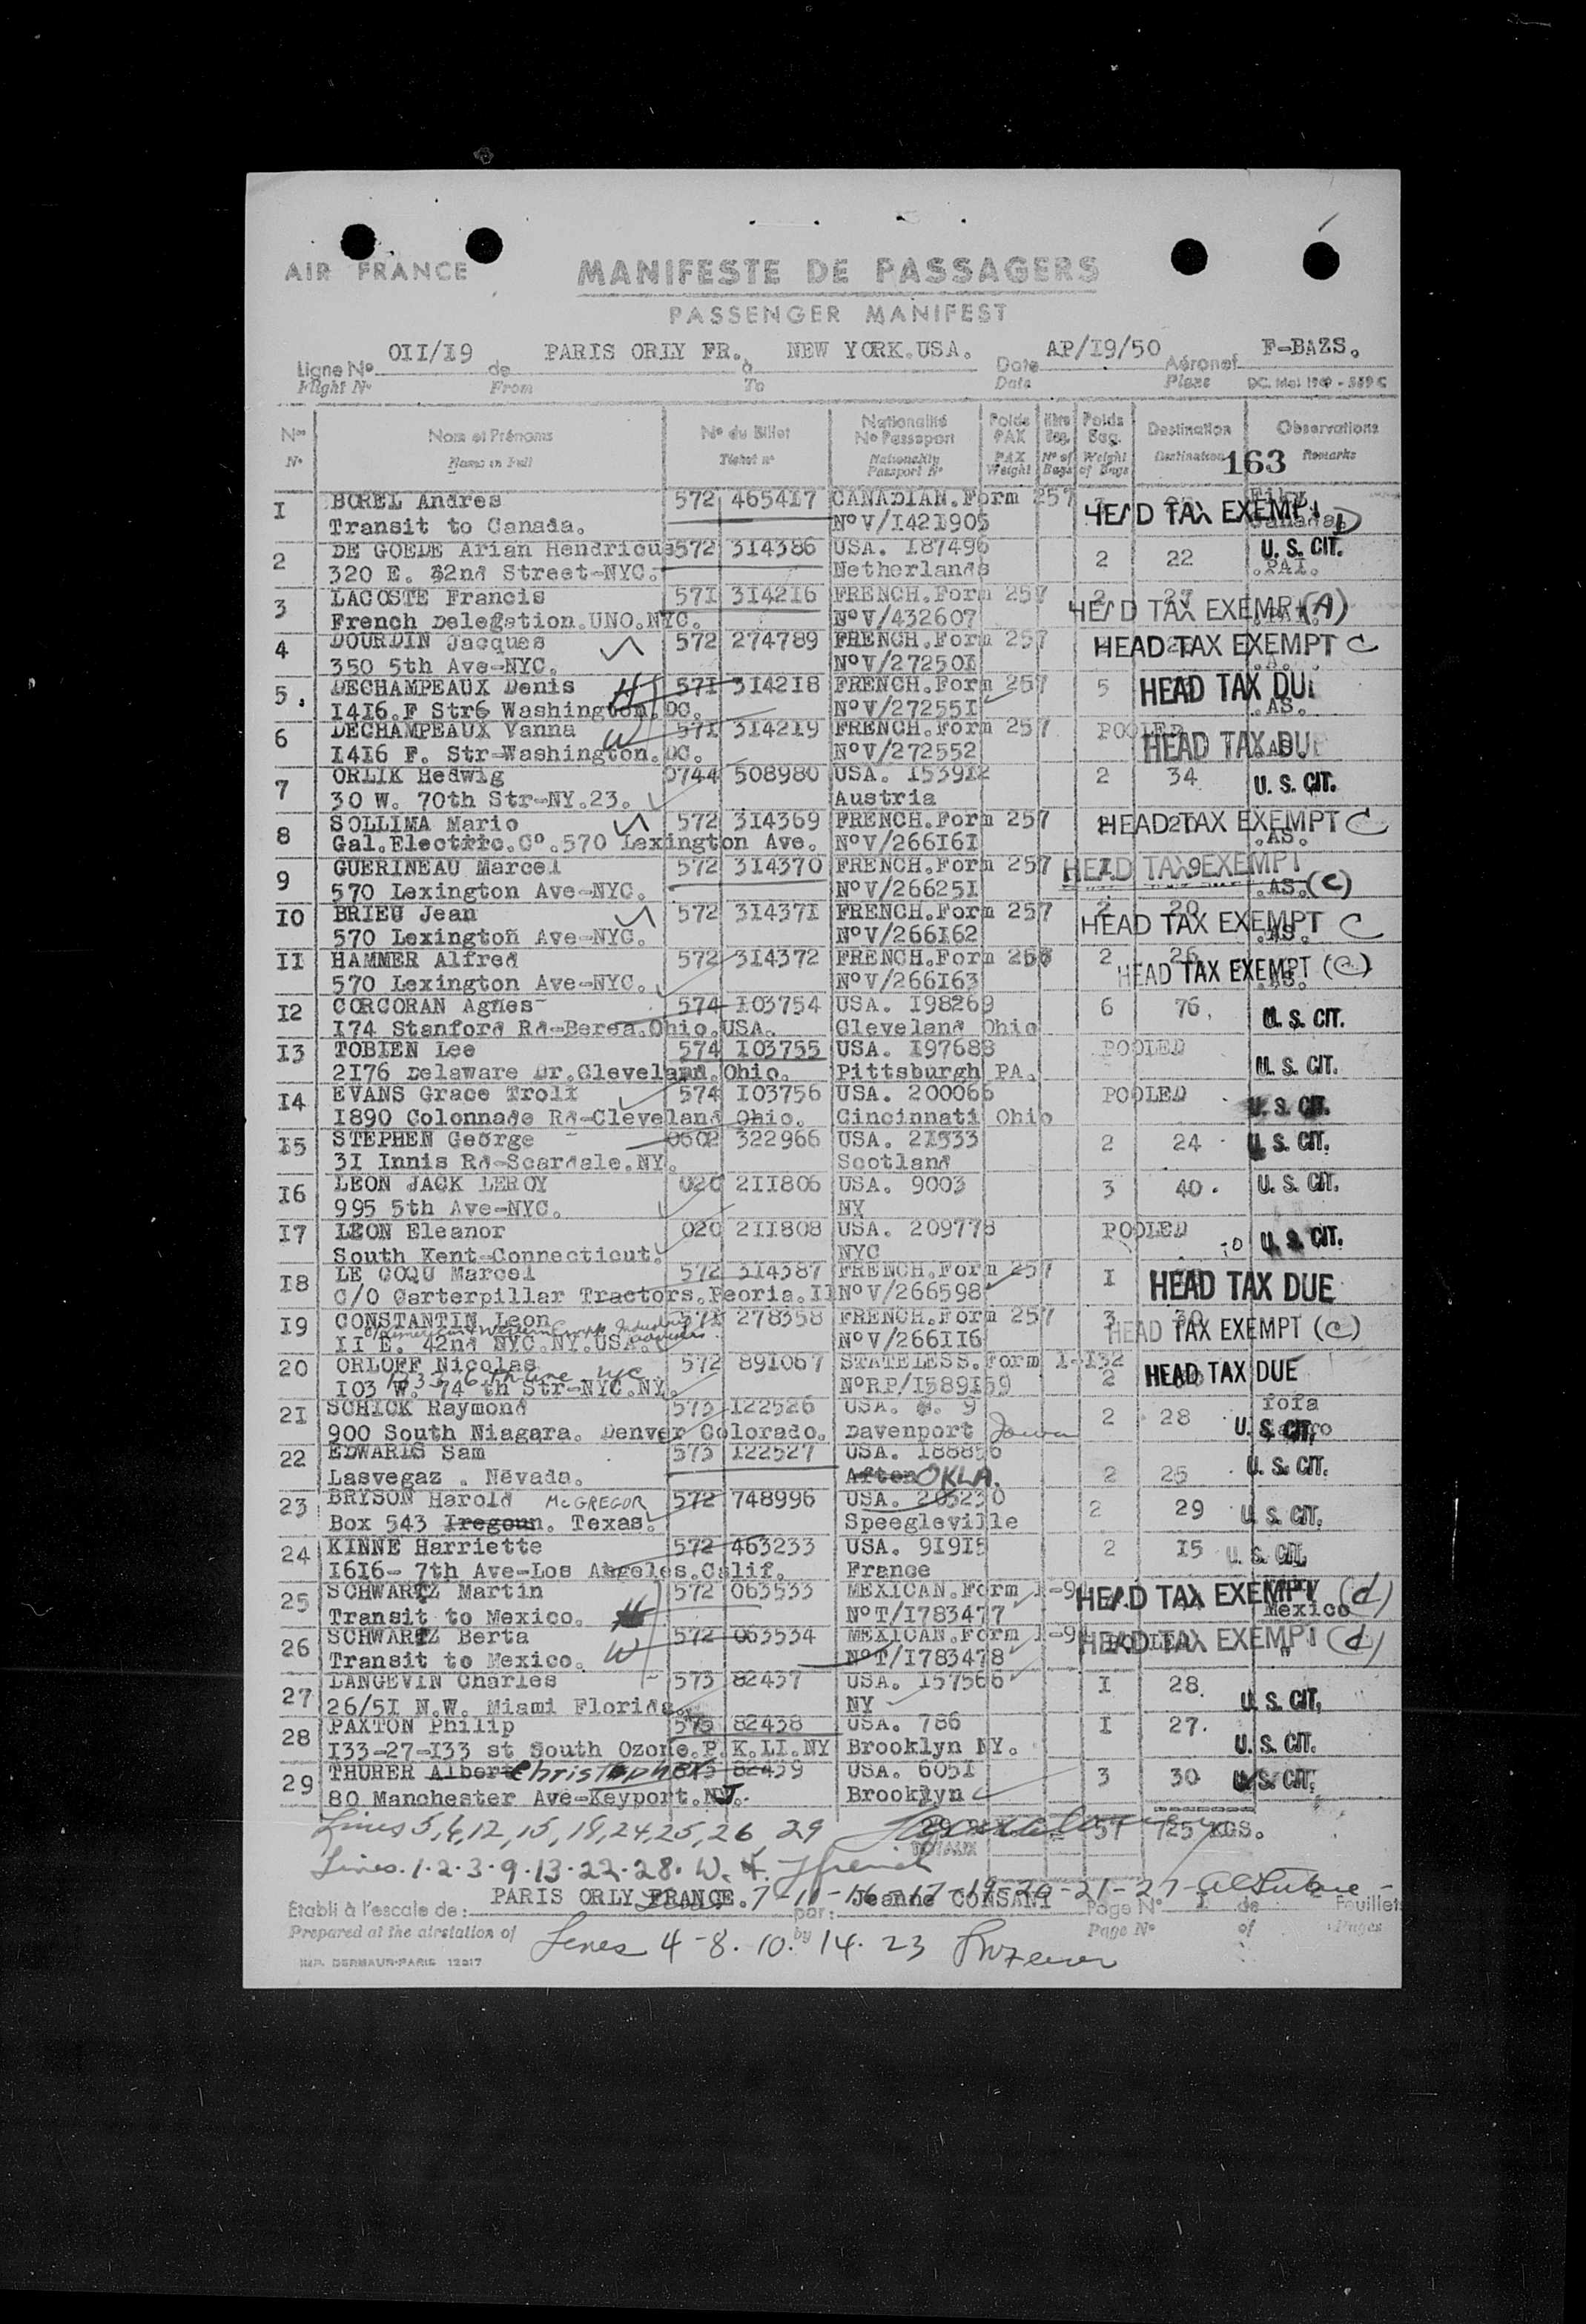 AIR FRANCE
MANIFESTE DE PASSAGERS
PASSENGER MANIFEST
Ligne No OII/I9 de PARIS ORLY FR. à NEW YORK.USA. Date AP/I9/50 Aéronef F-BAZS.
Flight No From To Date Plane
Nos Nom et Prénoms No du Billet Nationalité No Passeport Poids PAX Nbre Bag. Poids Bag. Destination Observations
No Name in Full Ticket no Nationality Passport No PAX Weight No of Bags Weight of Bags Destination 163 Remarks
I BOREL Andres 572 465417 CANADIAN.Form 257 HEAD TAX EXEMPT D
Transit to Canada. No V/I421905 Canada
2 DE GOEDE Arian Hendricus 572 3I4386 USA. I87496 2 22 U. S. CIT.
320 E. 32nd Street-NYC. Netherlands .PAI.
3 LACOSTE Francis 57I 3I42I6 FRENCH.Form 257 2 27 HEAD TAX EXEMPT (A)
French Delegation.UNO.NYC. No V/432607
4 DOURDIN Jacques 572 274789 FRENCH.Form 257 HEAD TAX EXEMPT C
350 5th Ave-NYC. No V/27250I
5. DECHAMPEAUX Denis H 57I 3I42I8 FRENCH.Form 257 5 HEAD TAX DUE
I4I6.F Str6 Washington.DC. No V/27255I .AS.
6 DECHAMPEAUX Vanna W 57I 3I42I9 FRENCH.Form 257 POOLED HEAD TAX DUE
I4I6 F. Str-Washington.DC. No V/272552 .AS.
7 ORLIK Hedwig 0744 508980 USA. I539I2 2 34 U. S. CIT.
30 W. 70th Str-NY.23. Austria
8 SOLLIMA Mario 572 3I4369 FRENCH.Form 257 2 HEAD TAX EXEMPT C
Gal.Electric.Co.570 Lexington Ave. No V/266I6I .AS.
9 GUERINEAU Marcel 572 3I4370 FRENCH.Form 257 HEAD TAX EXEMPT
570 Lexington Ave-NYC. No V/26625I .AS. (C)
IO BRIEU Jean 572 3I437I FRENCH.Form 257 2 20 HEAD TAX EXEMPT C
570 Lexington Ave-NYC. No V/266I62 .AS.
II HAMMER Alfred 572 3I4372 FRENCH.Form 2 26 HEAD TAX EXEMPT (C)
570 Lexington Ave-NYC. No V/266I63 .AS.
I2 CORCORAN Agnes 574 I03754 USA. I98269 6 76. U. S. CIT.
I74 Stanford Rd-Berea.Ohio.USA. Cleveland Ohio
I3 TOBIEN Lee 574 I03755 USA. I97688 POOLED U. S. CIT.
2I76 Delaware Dr.Cleveland.Ohio. Pittsburgh PA.
I4 EVANS Grace 574 I03756 USA. 200066 POOLED U. S. CIT.
I890 Colonnade Rd-Cleveland Ohio. Cincinnati Ohio
I5 STEPHEN George 0602 322966 USA. 2I533 2 24 U. S. CIT.
3I Innis Rd-Scardale.NY. Scotland
I6 LEON JACK LEROY 020 2II806 USA. 9003 3 40. U. S. CIT.
995 5th Ave-NYC. NY
I7 LEON Eleanor 020 2II808 USA. 209778 POOLED U. S. CIT.
South Kent-Connecticut. NYC
I8 LE COQU Marcel 572 3I4387 FRENCH.Form 257 I HEAD TAX DUE
C/O Carterpillar Tractors.Peoria.Il No V/266598
I9 CONSTANTIN Leon 57I 278358 FRENCH.Form 257 3 30 HEAD TAX EXEMPT (C)
II E. 42nd NYC.NY.USA. No V/266II6
20 ORLOFF Nicolas 572 89I067 STATELESS.Form I-I32 2 HEAD TAX DUE
I03 W. 74 th Str-NYC.NY. NoRP/I589I59
2I SCHICK Raymond 573 I22526 USA. 9 2 28 U. S. CIT.
900 South Niagara. Denver Colorado. Davenport Iowa
22 EDWARDS Sam 573 I22527 USA. I88856 U. S. CIT.
Lasvegaz . Nevada. Afton OKLA. 2 25
23 BRYSON Harold McGREGOR 572 748996 USA. 203230 2 29 U. S. CIT.
Box 543 Iregoun. Texas. Speegleville
24 KINNE Harriette 572 463233 USA. 9I9I5 2 I5 U. S. CIT.
I6I6- 7th Ave-Los Angeles.Calif. France
25 SCHWARTZ Martin 572 063533 MEXICAN.Form I-9 HEAD TAX EXEMPT (d)
Transit to Mexico. H NoT/I783477 Mexico
26 SCHWARTZ Berta 572 063534 MEXICAN.Form I-9 POOLED HEAD TAX EXEMPT (d)
Transit to Mexico. W NoT/I783478 "
27 LANGEVIN Charles 573 82437 USA. I57566 I 28. U. S. CIT.
26/5I N.W. Miami Florida. NY
28 PAXTON Philip 573 82438 USA. 786 I 27. U. S. CIT.
I33-27-I33 st South Ozone.P.K.LI.NY Brooklyn NY.
29 THURER Albert Christopher 573 82439 USA. 605I 3 30 U. S. CIT.
80 Manchester Ave-Keyport.NJ. Brooklyn
Lines 5,6,12,15,18,24,25,26,29 57 725 KGS.
TOTAUX
Lines.1.2.3.9.13.22.28.
Établi à l'escale de: PARIS ORLY FRANCE. 7-11-16-17-19-20-21-27- par: Jeanne CONSANI Page No I de Feuillets
Prepared at the airstation of by Page No of Pages
Lines 4-8.10.14.23
IMP. DERMAUR-PARIS 12517